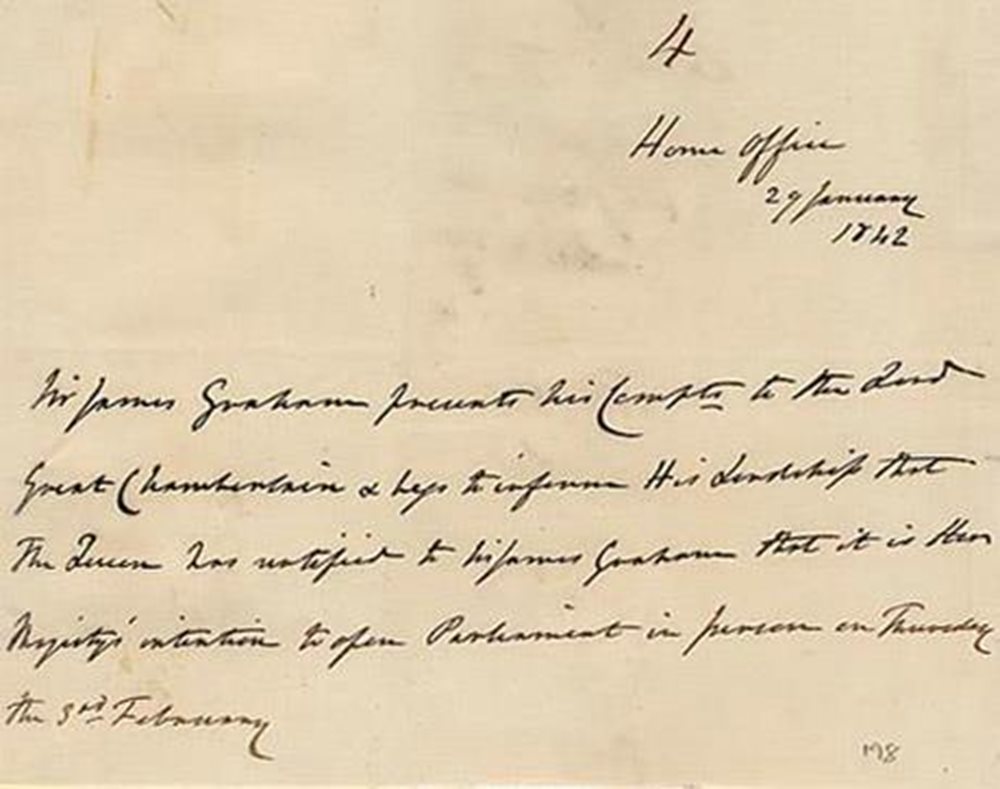 4
Home Office
29 January
1842
Sir James Graham presents his Compts to the Lord
Great Chamberlain & begs to inform His Lordship that
The Queen has notified to Sir James Graham that it is Her
Majesty's intention to open Parliament in person on Thursday
the 3rd February
198